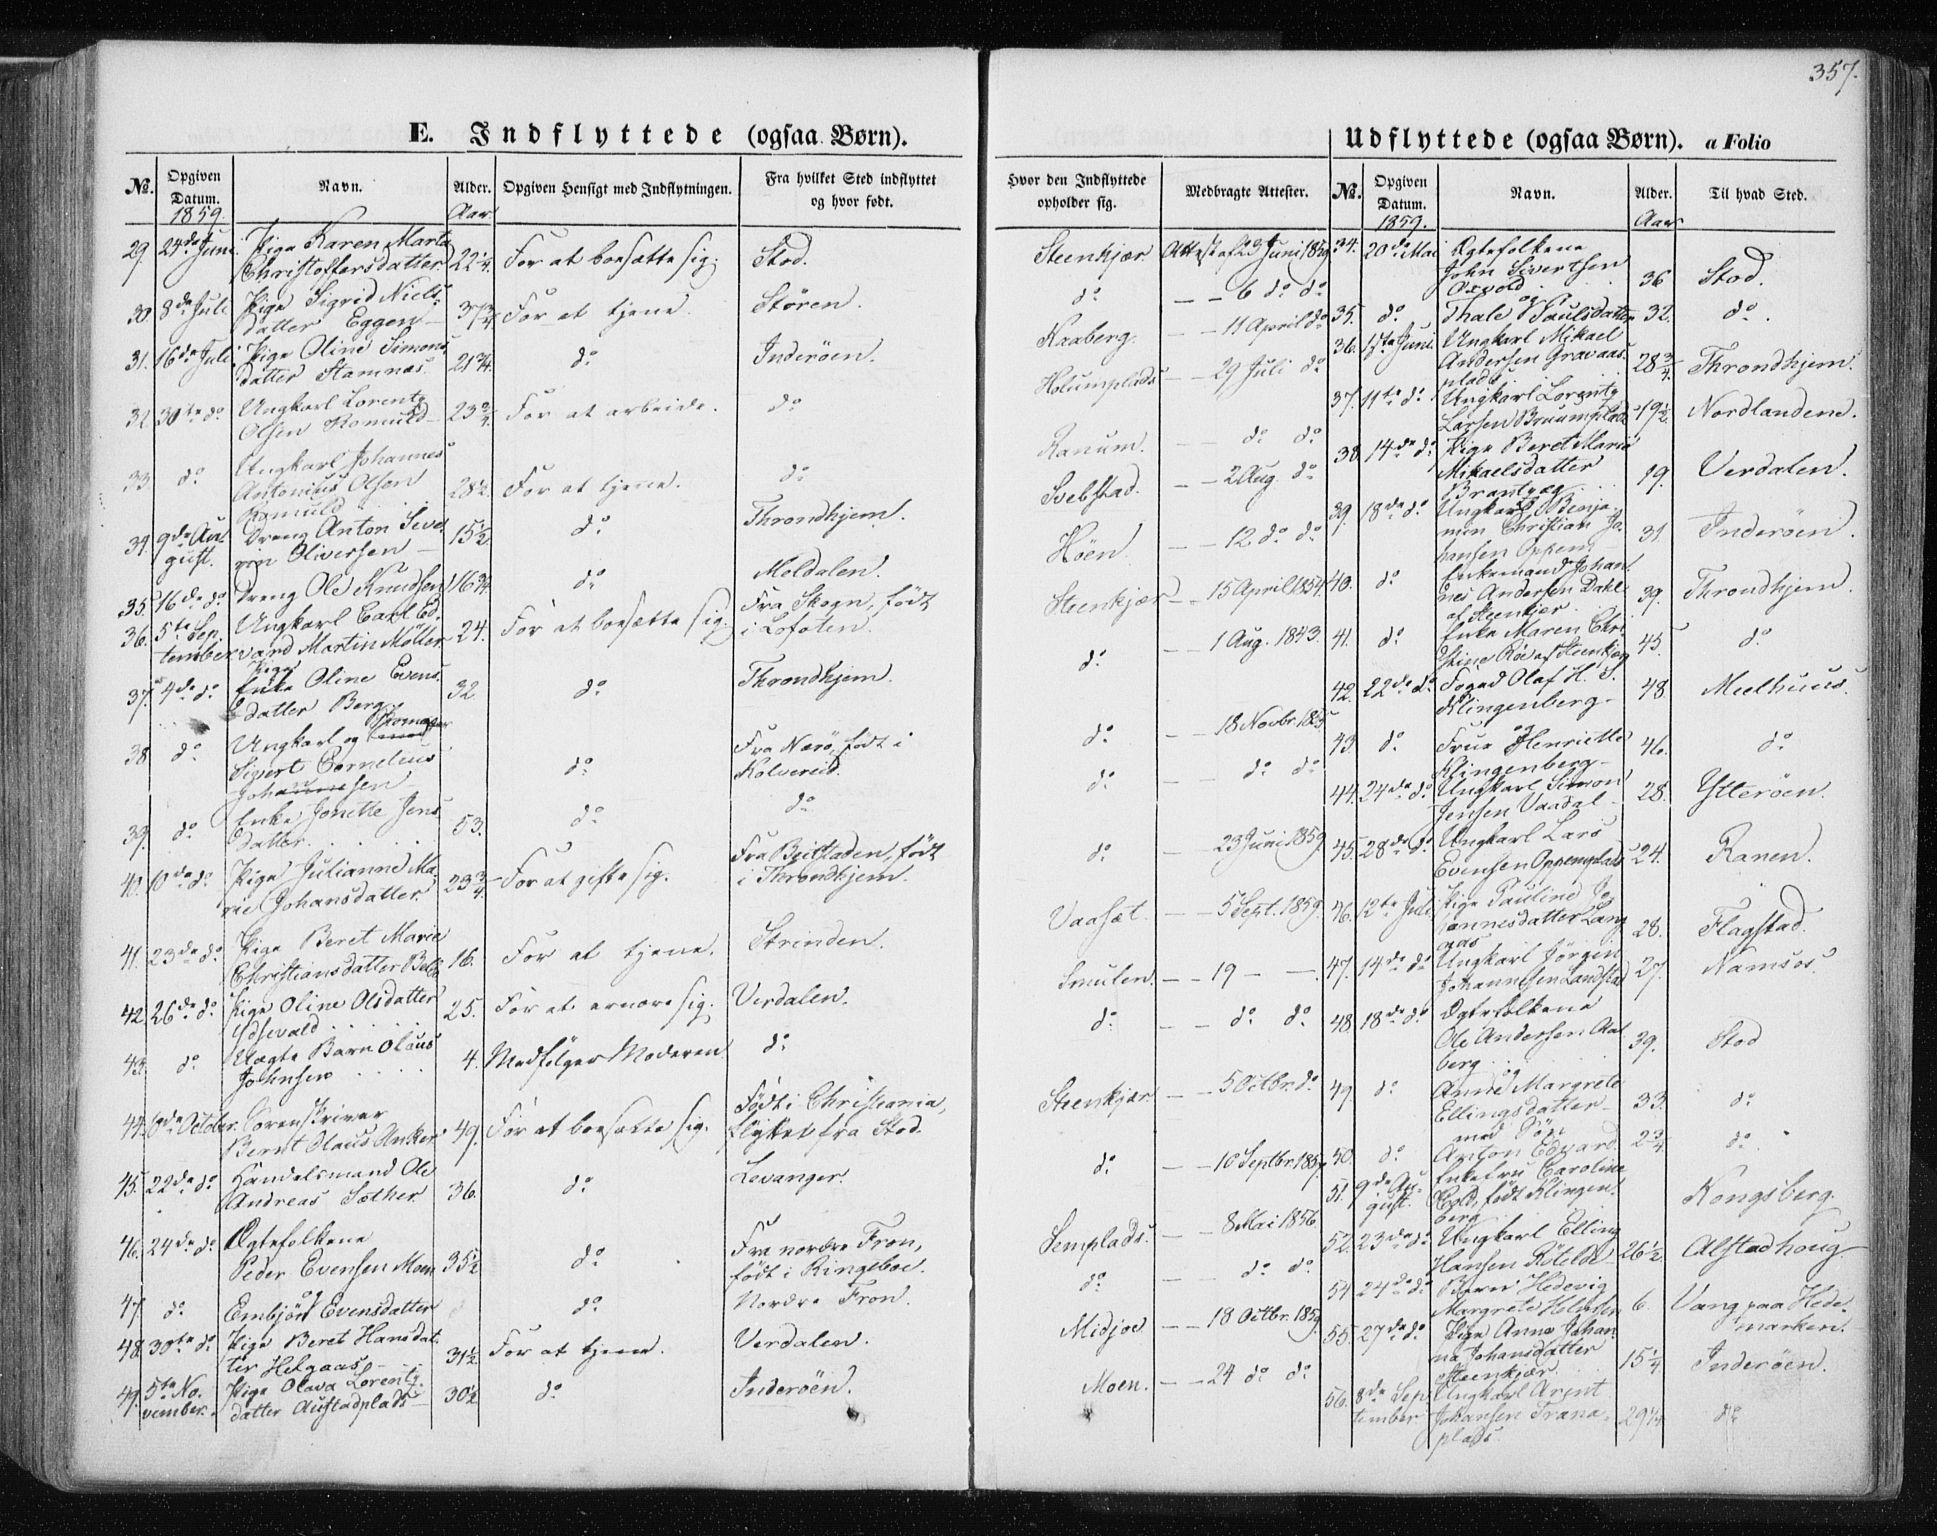 357.
E. Indflyttede (ogsaa Børn).
No. Opgiven Datum. Navn. Alder. Opgiven Hensigt med Indflytningen. Fra hvilket Sted indflyttet og hvor født.
Hvor den Indflyttede opholder sig. Medbragte Attester.
1859. Aar
29. 24de Juni Pige Karen Marta
Christoffersdatter 22 1/4. For at bosætte sig. Stod. Steenkjær Attest af 23 Juni 1859
30. 8de Juli Pige Sigrid Niels-
datter Eggen 37 3/4 For at tjene. Støren. do — — 6 do do
31. 16de Juli Pige Oline Simons
datter Stamnæs. 21 3/4. do Inderøen. Kaaberg. — — 11 April do
32 30te do Ungkarl Lorentz
Olsen Romuld 23 3/4 For at arbeide. do Holumplads — — 29 Juli do
33 do Ungkarl Johannes
Antonius Olsen
Romuld 28 1/2. For at tjene. do Ranum. — — do do
34. 9de Au-
gust. Dreng Anton Seve-
rin Oliversen 15 1/2 do Throndhjem. Svebstad. — — 2 Aug do
35 16de do Dreng Ole Knudsen 16 3/4. do Meldalen. Höen. — — 12 do do
36. 5te Sep-
tember Ungkarl Carl Ed-
vard Martin Møller 24. For at bosætte sig. Fra Skogn, født
i Lofoten. Steenkjær — — 15 April 1854
37. 4de do Pige
Enke Oline Evens-
datter Berg 32 do Throndhjem. do — — 1 Aug. 1843.
38 do Ungkarl og Skomager
Sivert Cornelius
Johannesen do Fra Nærø, født i
Kolvereid. do — — 18 Novbr. 1825
39. do Enke Jonette Jens
datter. 53. do do do — — do do
40. 10de do Pige Julianne Ma-
rie Johansdatter. 23 3/4. For at gifte sig. Fra Beitstaden, født
i Throndhjem. do — 23 Juni 1859
41. 23de do Pige Beret Marie
Christiansdatter 16. For at tjene. Strinden. Vaaset. — — 5 Sept. 1859.
42. 26de do Pige Oline Olsdatter
Ydsevald 25. For at ernære sig. Verdalen. Smulen. — — 19 — —
43. do Uægte Barn Olaus
Johnsen 4. Medfølger Moderen do do — — do do
44. 6de October. Sorenskriver
Bernt Olaus Anker 49. For at bosætte sig. Født i Christiania,
flyttet fra Stod. Steenkjær. — — 5 Octbr. do
45. 22de do Handelsmand Ole
Andreas Sæther 36. do Levanger. do — — 10 Septbr. 1859.
46. 24de do Ægtefolkene
Peder Evensen Moen 35 1/2 do Fra nordre Fron,
født i Ringeboe. Semplads. — — 8 Mai 1856.
47. do og
Embjør Evensdatter do Nordre Fron. do — — do do
48. 30te do Pige Beret Hansdat-
ter Helgaas 31 1/2 For at tjene. Verdalen. Midjoe — — 18 Octbr. 1859.
49. 5te No-
vember. Pige Olava Lorentz-
datter Austadplads 30 1/2 do Inderøen. Moen. — — 24 do do
Udflyttede (ogsaa Børn). a Folio
No. Opgiven Datum. Navn. Alder. Til hvad Sted.
1859. Aar
34. 20de Mai Ægtefolkene
John Sivertsen
Oxvold 36 Stod.
35. do og
Thale Paulsdatter 32. do.
36. 1ste Juni. Ungkarl Mikael
Andersen Gravaas-
plads 28 3/4. Throndhjem.
37. 11te do Ungkarl Lorentz
Larsen 19 1/2 Nordlandene.
38. 14de do Pige Beret Marie
Mikaelsdatter
19. Verdalen.
39. 18de do Ungkarl Benja-
min Christian Jo-
hansen Oppem 31 Inderøen.
40. do Enkemand Johan-
nes Andersen Dahl
af Steenkjær 39. Throndhjem.
41. do Enke Maren Chri-
stine Röe af Steenkjær 45. do
42. 22de do Foged Olaf H. S.
Klingenberg 48 Meelhuus.
43. do og
Frue Henriette
Klingenberg 46. do
44. 24de do Ungkarl Simon
Jensen Vaadal 28. Ytterøen.
45. 28de do Ungkarl Lars
Evensen Oppemplads 24. Ranen.
46. 12te Juli Pige Pauline Jo-
hannesdatter Lang
næs 28. Flagstad.
47. 14de do Ungkarl Jörgen
Johannesen Landstad 27. Namsos.
48. 18de do Ægtefolkene
Ole Andersen Aal-
berg 39. Stod
49 do og
Anne Margrete
Ellingsdatter 33. do
50. do med Søn
Anton Edvard 2 3/4 do
51. 9de Au-
gust. Enkefru Caroline
Cold, født Klingen-
berg Kongsberg.
52. 23de do Ungkarl Elling
Hansen 26 1/2 Alstadhoug
54 24de do Barn Hedevig
Margrete 6. Vang paa Hede-
marken.
55. 27de do Pige Anna Johan-
na Johansdatter
Steenkjær 15 1/4 Inderøen.
56. 8de Sep-
tember Ungkarl Arnt
Johansen Trana-
plads. 29 1/4 do